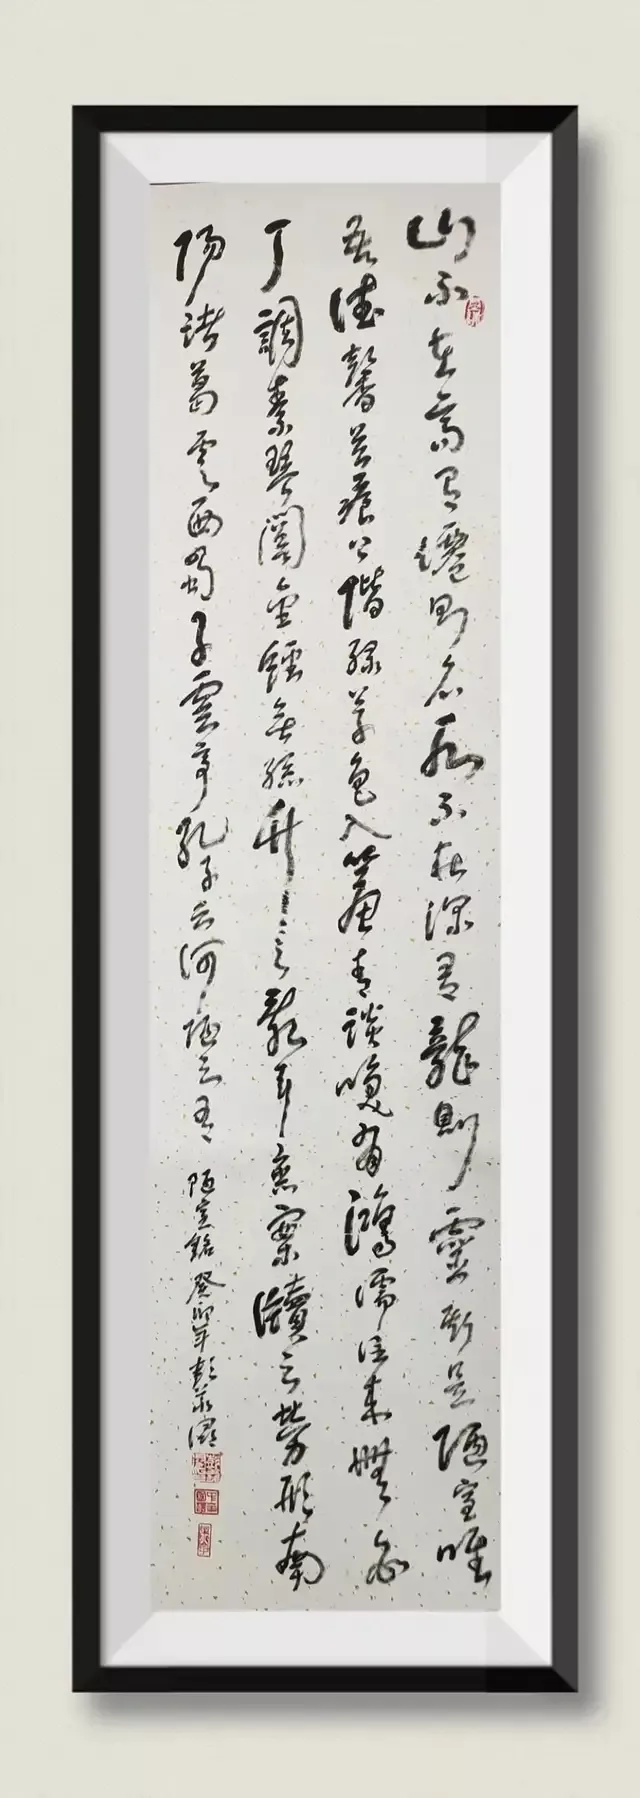 山不在高有僊則名水不在深有龍則靈斯是陋室唯
吾德馨苔痕上階綠草色入簾青談咲有鴻儒往來無白
丁調素琴閱金經無絲竹之亂耳無案牘之勞形南
陽諸葛廬西蜀子雲亭孔子云何陋之有
陋室銘癸卯年彭